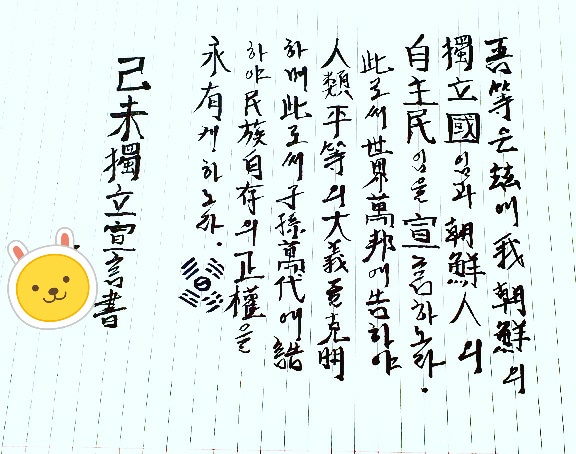 吾等은 玆에 我 朝鮮의
獨立國임과 朝鮮人의
自主民임을 宣言하노라.
此로써 世界萬邦에 告하야
人類平等의 大義를 克明
하며 此로써 子孫萬代에 誥
하야 民族自存의 正權을
永有게 하노라.
己未獨立宣言書